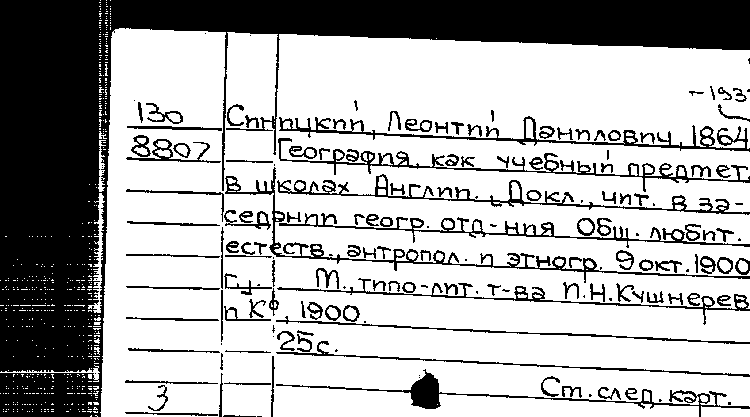 -193
130 Синицкий, Леонтий Данилович, 1864
8807 География, как учебный предмет.
в школах Англии. Докл., чит. в за-
седании геогр. отд-ния Общ. любит.
естеств., антропол. и этногр. 9 окт. 1900
г. М., типо-лит. т-ва И.Н.Кушнерев
и К°, 1900.
25с.
3 См. след. карт.